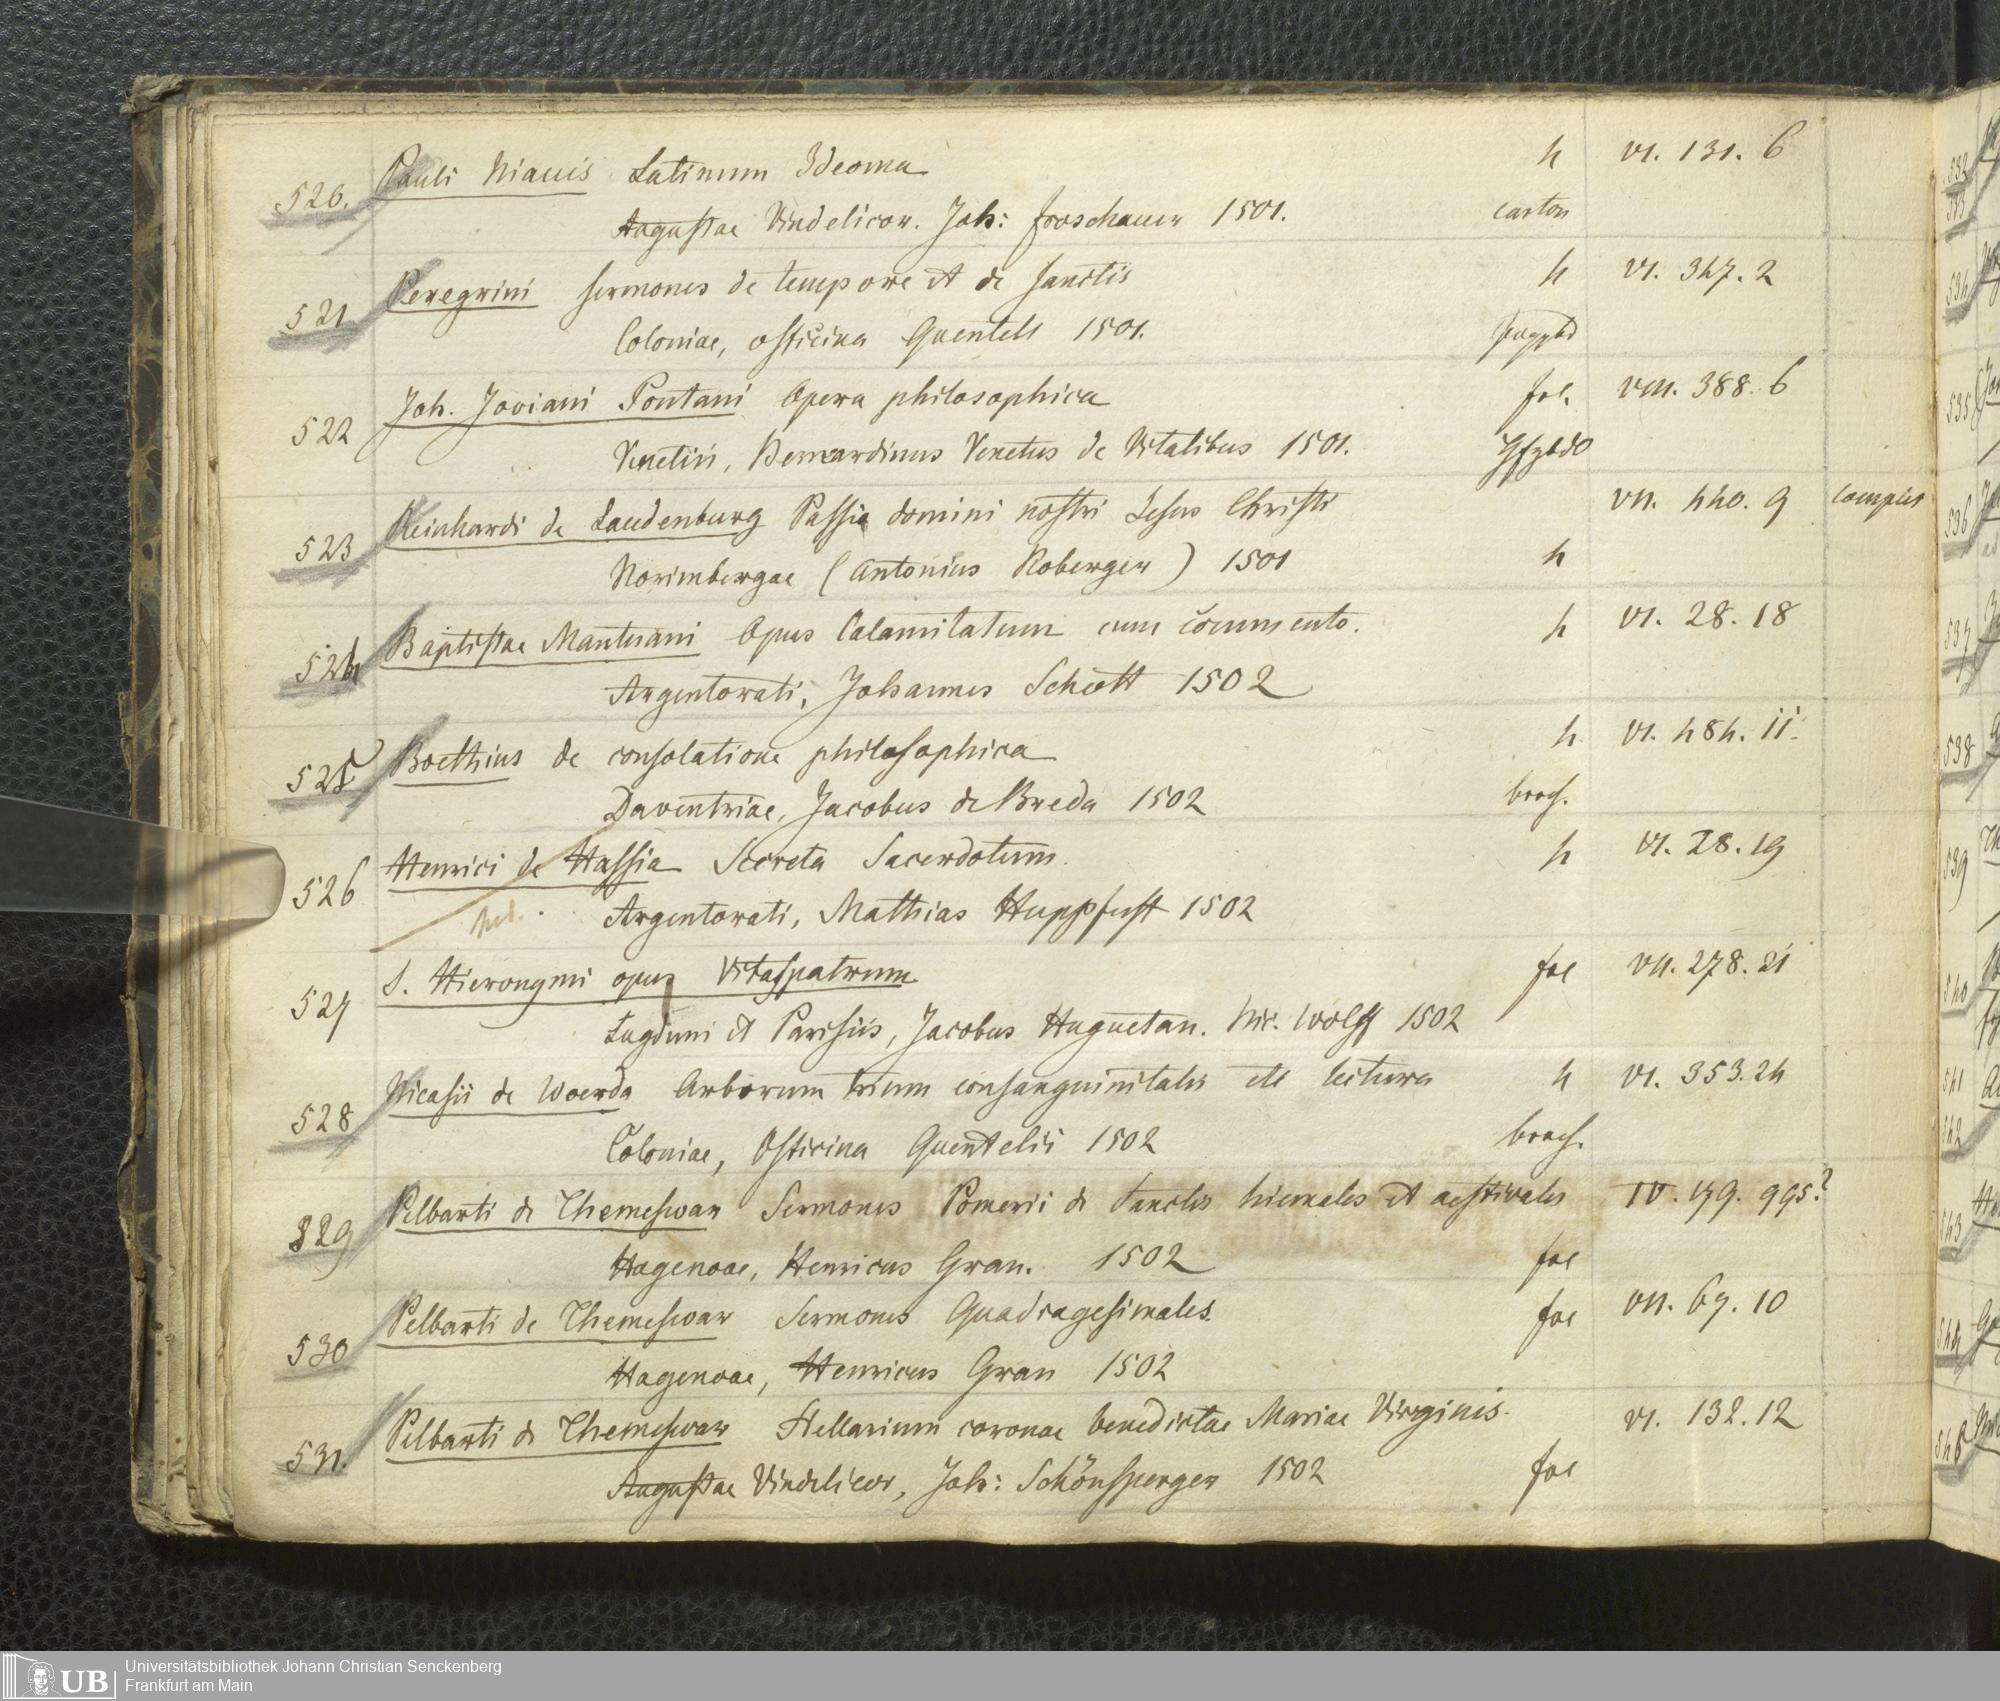 520. Pauli Niauis Latinum Ideoma h VI. 131. 6
Augustae Vindelicor. Joh: Froschauer 1501. carton
521 Peregrini sermones de tempore et de sanctis h VI. 347. 2
Coloniae, officina Quentell 1501.
522 Joh. Joviani Pontani Opera philosophica fol. VIII. 388. 6
Venetiis, Bernardinus Venetus de Vitalibus 1501.
523 Reinhardi de Laudenburg Passio domini nostri Jesus Christi VII. 440. 9 complet
Norimbergae (Antonius Koberger) 1501 h
524 Baptistae Mantuani Opus Calamitatum cum commento. h VI. 28. 18
Argentorati, Johannes Schott 1502
525 Boethius de consolatione philosophica h VI. 484. 11.
Daventriae, Jacobus de Breda 1502 broch.
526 Henrici de Hassia Secreta Sacerdotum. h VI. 28. 19
Argentorati, Mathias Huppfuff 1502
527 S. Hieronymi opus Vitaspatrum fol VII. 278. 21
Lugduni et Parisiis, Jacobus Huguetan. Nic. Wolff 1502
528 Nicasii de Woerda Arborum trium consanguinitatis etc lectura h VI. 353. 24
Coloniae, Officina Quentelii 1502 broch.
529 Pelbarti de Themeswar Sermones Pomerii de Sanctis hiemales et aestivales IV. 179. 995?
Hagenoae, Henricus Gran. 1502 fol
530 Pelbarti de Themeswar Sermones Quadragesimales. fol VII. 67. 10
Hagenoae, Henricus Gran 1502
531. Pelbarti de Themeswar Stellarium coronae benedictae Mariae Virginis. VI. 132. 12
Augustae Vindelicor, Joh: Schönsperger 1502 fol
532
534
535
536
537
538
539
540
541
542
543
544
UB Universitätsbibliothek Johann Christian Senckenberg
Frankfurt am Main